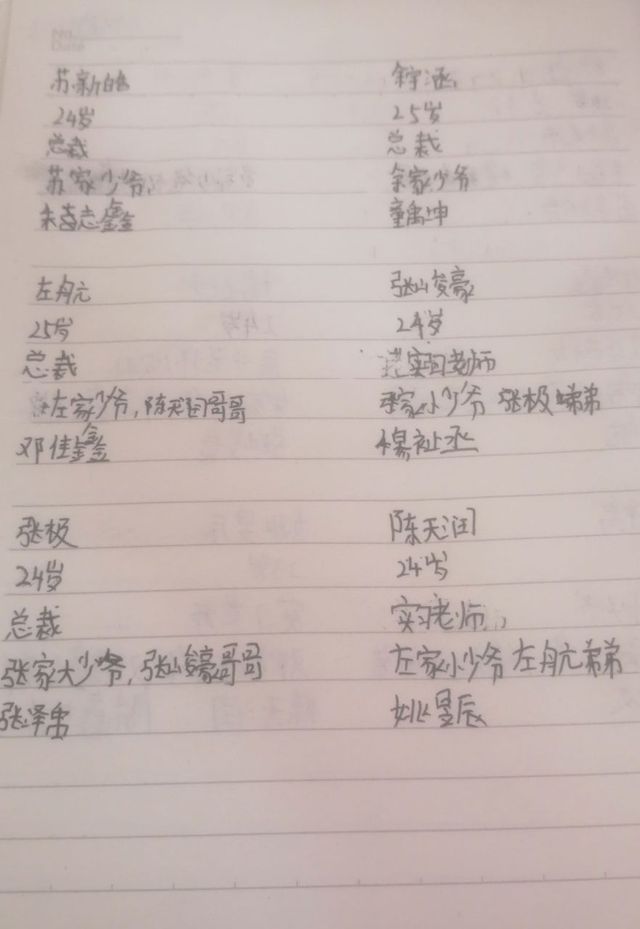 苏新皓
24岁
总裁
苏家少爷,
朱志鑫
余宇涵
25岁
总裁
余家少爷
童禹坤
左航
25岁
总裁
左家少爷,陈天润哥哥
邓佳鑫
张峻豪
24岁
实习老师
张家小少爷 张极弟弟
杨祉丞
张极
24岁
总裁
张家大少爷,张峻豪哥哥
张泽禹
陈天润
24岁
实习老师,
左家小少爷 左航弟弟
姚昱辰